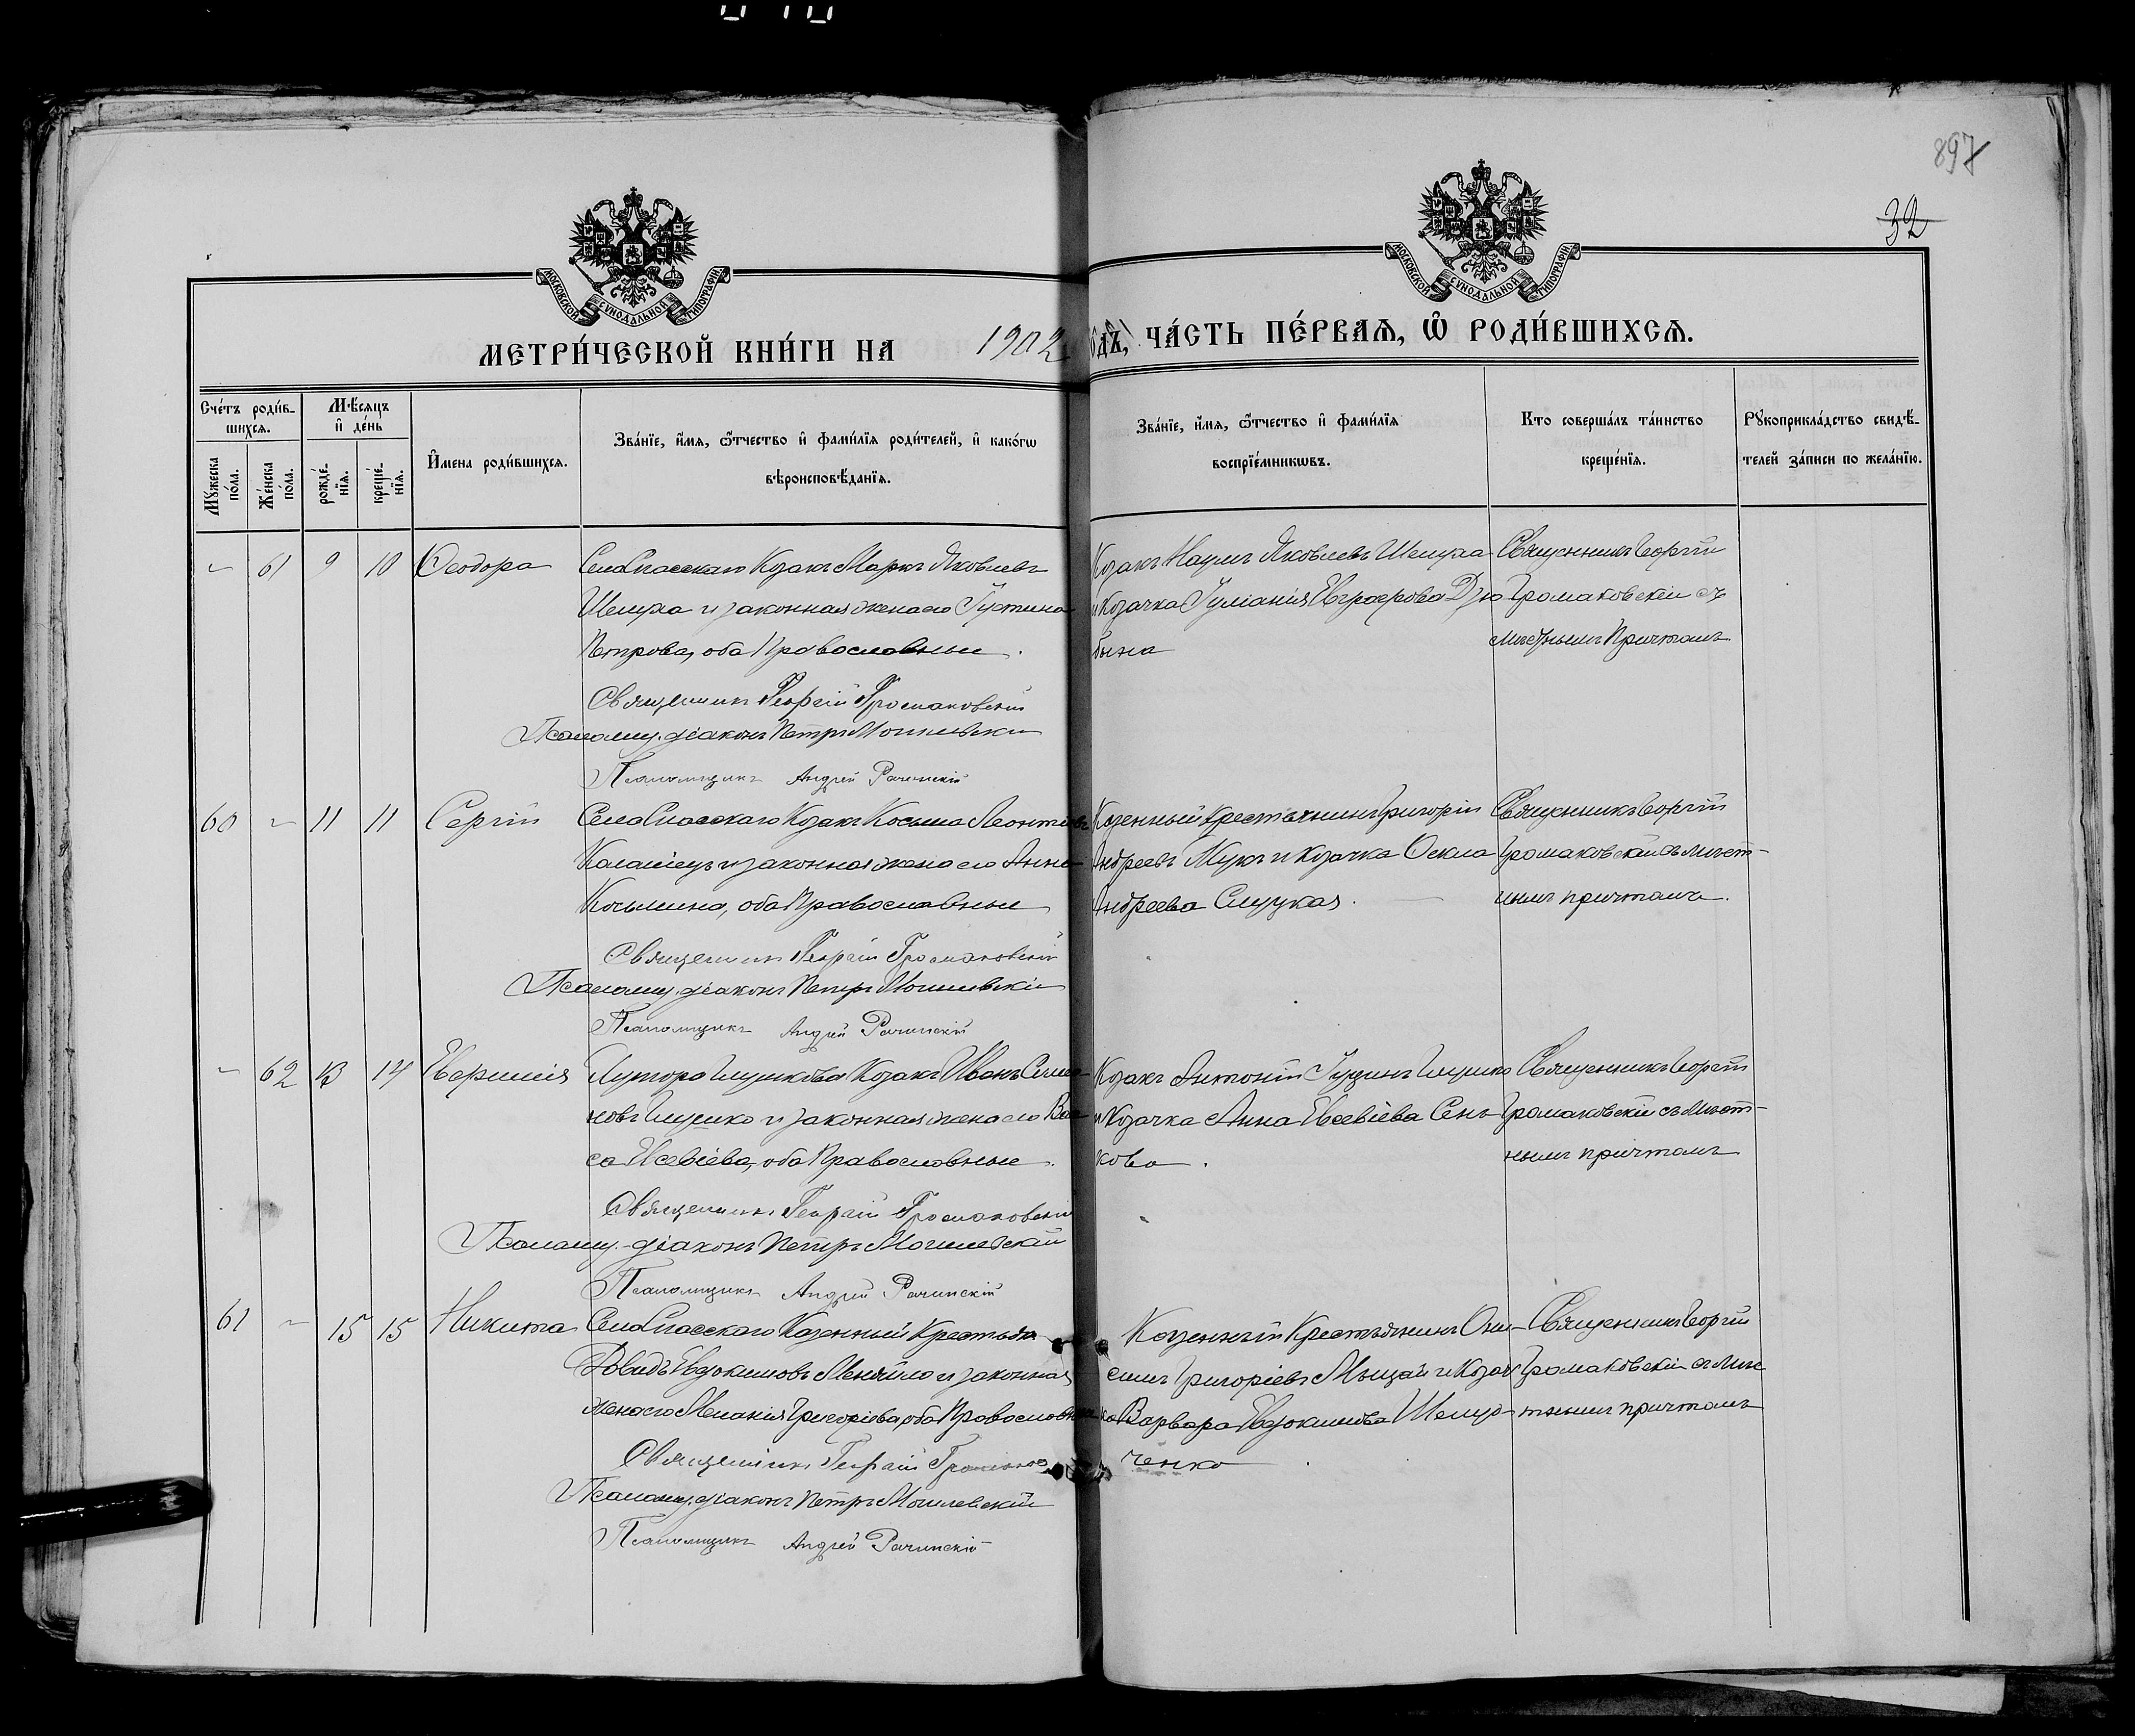 897
32
МОСКОВСКОЙ СѴНОДАЛЬНОЙ ТИПОГРАФІИ
МОСКОВСКОЙ СѴНОДАЛЬНОЙ ТИПОГРАФІИ
МЕТРИ́ЧЕСКОЙ КНИ́ГИ НА 1902
ѻдъ, ЧА́СТЬ ПЕ́РВАѦ, Ѽ РОДИ́ВШИХСѦ.
Сче́тъ роди́в-
шихсѧ.
Мѣ́сѧцъ
и҆ де́нь
Мꙋ́жеска
по́ла.
Же́нска
по́ла.
рожде́-
нїѧ.
креще́-
нїѧ.
И҆мена роди́вшихсѧ.
Зва́нїе, и҆́мѧ, ѻ҆́тчество и҆ фами́лїѧ роди́телей, и҆ како́гѡ
вѣроисповѣ́данїѧ.
Зва́нїе, и҆́мѧ, ѻ҆́тчество и҆ фами́лїѧ
воспрїе́мникѡвъ.
Кто соверша́лъ та́инство
креще́нїѧ.
Рꙋкоприкла́дство свидѣ́-
телей за́писи по жела́нїю.
- 61 9 10 Ѳеодора
Села Спасскаго Козакъ Маркъ Яковлевъ
Шелуха и законная жена его Іустина
Петрова, оба Православные.
Священникъ Георгій Громаковскій
Псаломщ. діаконъ Петръ Могилевскій
Псаломщикъ Андрей Рачинскій
Козакъ Наумъ Яковлевъ Шелуха
и Козачка Іуліанія Евграфова Дзю
бына
Священникъ Георгій
Громаковскій съ
мѣстнымъ Причтомъ
60 - 11 11 Сергій
Села Спасскаго Козакъ Косьма Леонтіевъ
и законная жена его Анна
Косьмина, оба Православные
Священникъ Георгій Громаковскій
Псаломщ. діаконъ Петръ Могилевскій
Псаломщикъ Андрей Рачинскій
Казенный Крестьянинъ Григорій
Андреевъ и Козачка
Андреева
Священникъ Георгій
Громаковскій съ мѣст-
нымъ причтомъ.
- 62 13 14 Евфимія
Хутора Глушкова Козакъ Иванъ Симео-
новъ Глушко и законная жена его Вас-
са Евсевіева, оба Православные.
Священникъ Георгій Громаковскій
Псаломщ.-діаконъ Петръ Могилевскій
Псаломщикъ Андрей Рачинскій
Козакъ Антоній Глушко
и Козачка Анна Евсевіева Сень-
кова.
Священникъ Георгій
Громаковскій съ мѣст-
нымъ причтомъ
61 - 15 15 Никита
Села Спасскаго Казенный Крестьян
Давидъ Евдокимовъ Меняйло и законная
жена его Меланія Григоріева, оба Православные
Священникъ Георгій Громаков
Псаломщ. діаконъ Петръ Могилевскій
Псаломщикъ Андрей Рачинскій
Казенный Крестьянинъ Они-
симъ Григоріевъ и Козач
ка Варвара Евдокимова Шелуд-
ченко
Священникъ Георгій
Громаковскій съ мѣс
тнымъ причтомъ